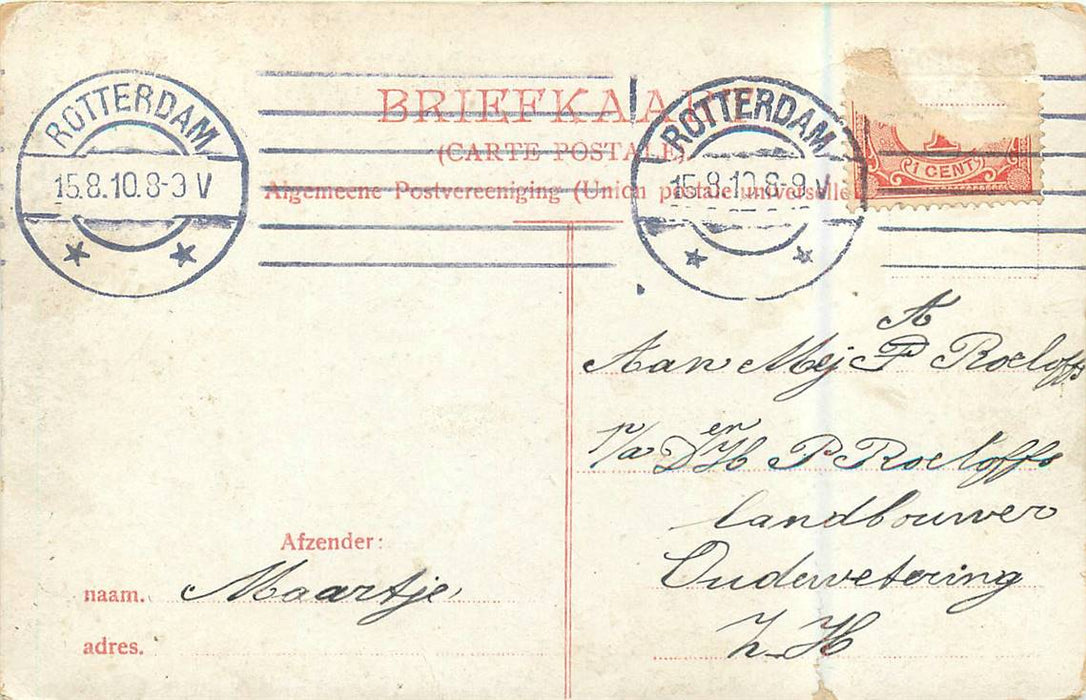 BRIEFKAART
(CARTE POSTALE)
Algemeene Postvereeniging (Union postale universelle)
ROTTERDAM
15.8.10.8-9 V
ROTTERDAM
15.8.10.8-9 V
1 CENT
A
Aan Mej P Roeloffs
p/a Den H P Roeloffs
landbouwer
Oudewetering
Z. H
Afzender:
naam. Maartje
adres.